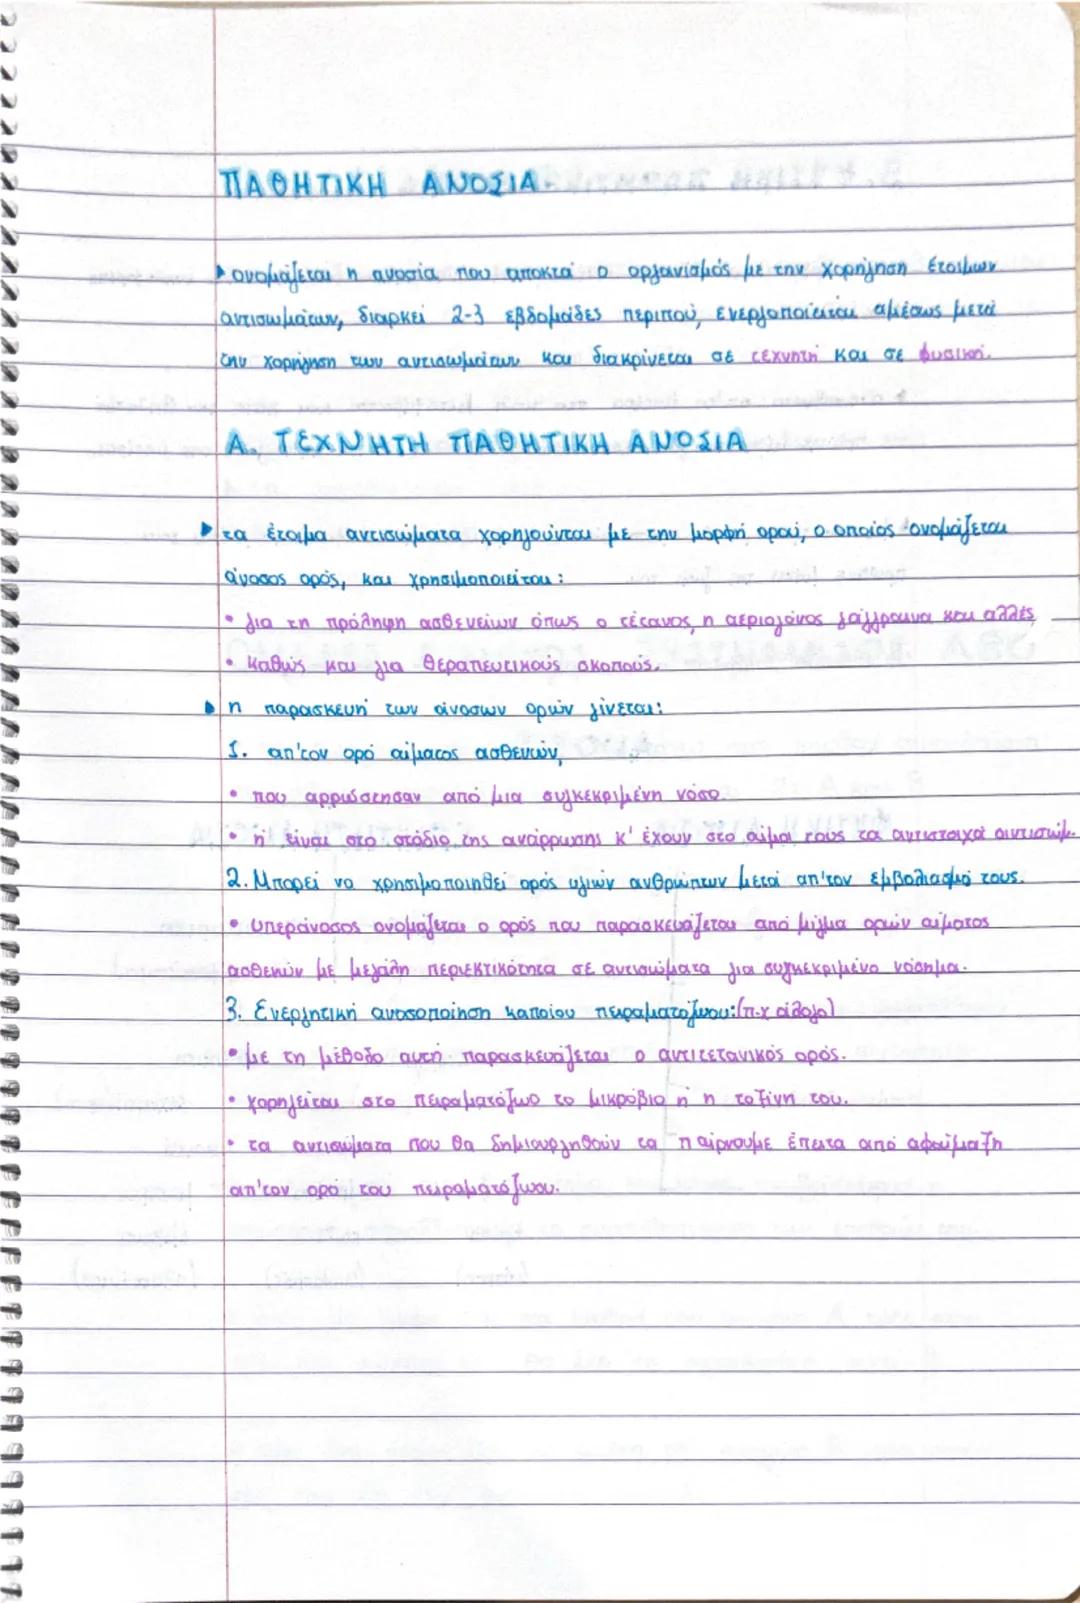 ΠΑΘΗΤΙΚΗ ΑΝΟΣΙΑ
▸ ονομάζεται η ανοσία που αποκτά ο οργανισμός με την χορήγηση έτοιμων
αντισωμάτων, διαρκεί 2-3 εβδομάδες περίπου, ενεργοποιείται αμέσως μετά
την χορήγηση των αντισωμάτων και διακρίνεται σε τεχνητή και σε φυσική.
Α. ΤΕΧΝΗΤΗ ΠΑΘΗΤΙΚΗ ΑΝΟΣΙΑ
▸ τα έτοιμα αντισώματα χορηγούνται με την μορφή ορού, ο οποίος ονομάζεται
άνοσος ορός, και χρησιμοποιείται:
• για τη πρόληψη ασθενείων όπως ο τέτανος, η αεριογόνος γάγγραινα και αλλές
• καθώς και για θεραπευτικούς σκοπούς.
▸ η παρασκευή των άνοσων ορών γίνεται:
1. απ'τον ορό αίματος ασθενών,
• που αρρώστησαν από μια συγκεκριμένη νόσο.
• ή είναι στο στάδιο της ανάρρωσης κ' έχουν στο αίμα τους τα αντιστοιχά αντισώμ.
2. Μπορεί να χρησιμοποιηθεί ορός υγιών ανθρώπων μετά απ'τον εμβολιασμό τους.
• υπεράνοσος ονομάζεται ο ορός που παρασκευάζεται από μίγμα ορών αίματος
ασθενών με μεγάλη περιεκτικότητα σε αντισώματα για συγκεκριμένο νόσημα.
3. Ενεργητική ανοσοποίηση κάποιου πειραματόζωου: (π.χ άλογο)
• με τη μέθοδο αυτή παρασκευάζεται ο αντιτετανικός ορός.
• χορηγείται στο πειραματόζωο το μικρόβιο ή η τοξίνη του.
• τα αντισώματα που θα δημιουργηθούν τα παίρνουμε έπειτα από αφαίμαξη
απ'τον ορό του πειραματόζωου.